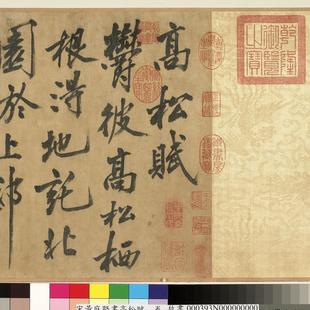 乾隆御覽之寶
高松賦
欝彼高松栖
根得地託北
園於上邸
宋黃庭堅書高松賦 卷 故書 000393N000000000